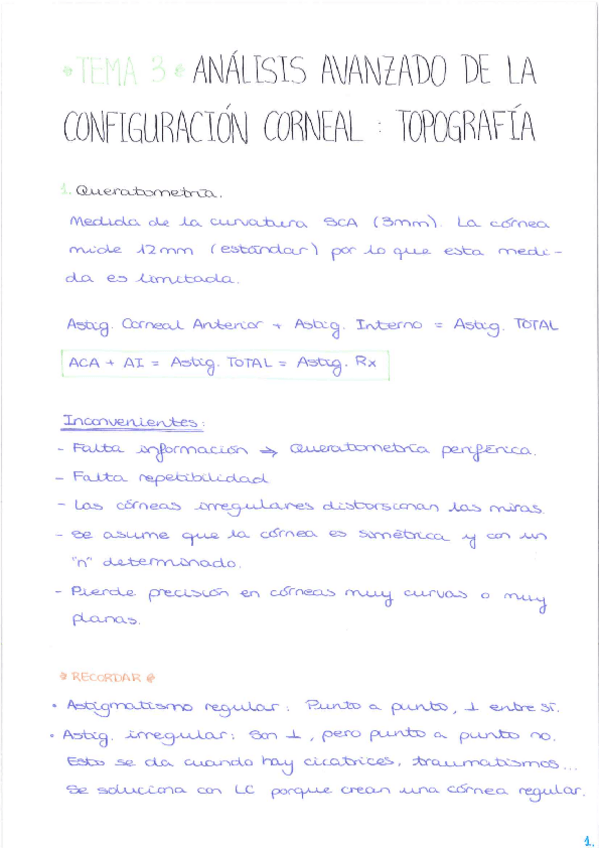 * TEMA 3 * ANÁLISIS AVANZADO DE LA
CONFIGURACIÓN CORNEAL : TOPOGRAFÍA
1. Queratometría.
Medida de la curvatura SCA (3mm). La córnea
mide 12mm (estándar) por lo que esta medi-
da es limitada.
Astig. Corneal Anterior + Astig. Interno = Astig. TOTAL
ACA + AI = Astig. TOTAL = Astig. Rx
Inconvenientes:
- Falta información → Queratometría periférica.
- Falta repetibilidad
- Las córneas irregulares distorsionan las miras.
- Se asume que la córnea es simétrica y con un
"n" determinado.
- Pierde precisión en córneas muy curvas o muy
planas.
* RECORDAR *
• Astigmatismo regular: Punto a punto, ⊥ entre sí.
• Astig. irregular: Son ⊥, pero punto a punto no.
Esto se da cuando hay cicatrices, traumatismos...
Se soluciona con LC porque crean una córnea regular.
1.